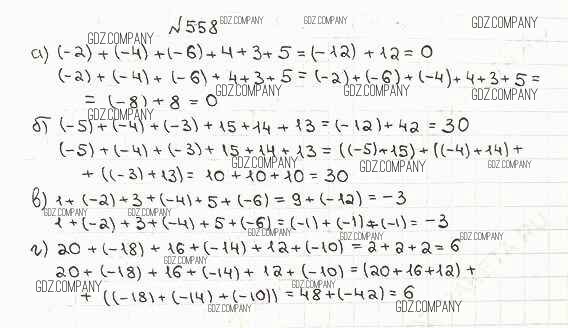 №558
GDZ.COMPANY GDZ.COMPANY GDZ.COMPANY
GDZ.COMPANY
а) (-2) + (-4) + (-6) + 4 + 3 + 5 = (-12) + 12 = 0
(-2) + (-4) + (-6) + 4 + 3 + 5 = (-2) + (-6) + (-4) + 4 + 3 + 5 =
GDZ.COMPANY GDZ.COMPANY GDZ.COMPANY
= (-8) + 8 = 0
GDZ.COMPANY
б) (-5) + (-4) + (-3) + 15 + 14 + 13 = (-12) + 42 = 30
(-5) + (-4) + (-3) + 15 + 14 + 13 = ((-5) + 15) + ((-4) + 14) +
GDZ.COMPANY GDZ.COMPANY GDZ.COMPANY
+ ((-3) + 13) = 10 + 10 + 10 = 30
в) 1 + (-2) + 3 + (-4) + 5 + (-6) = 9 + (-12) = -3
GDZ.COMPANY GDZ.COMPANY
1 + (-2) + 3 + (-4) + 5 + (-6) = (-1) + (-1) + (-1) = -3
GDZ.COMPANY GDZ.COMPANY GDZ.COMPANY
г) 20 + (-18) + 16 + (-14) + 12 + (-10) = 2 + 2 + 2 = 6
GDZ.COMPANY
20 + (-18) + 16 + (-14) + 12 + (-10) = (20 + 16 + 12) +
GDZ.COMPANY GDZ.COMPANY
+ ((-18) + (-14) + (-10)) = 48 + (-42) = 6
GDZ.COMPANY GDZ.COMPANY